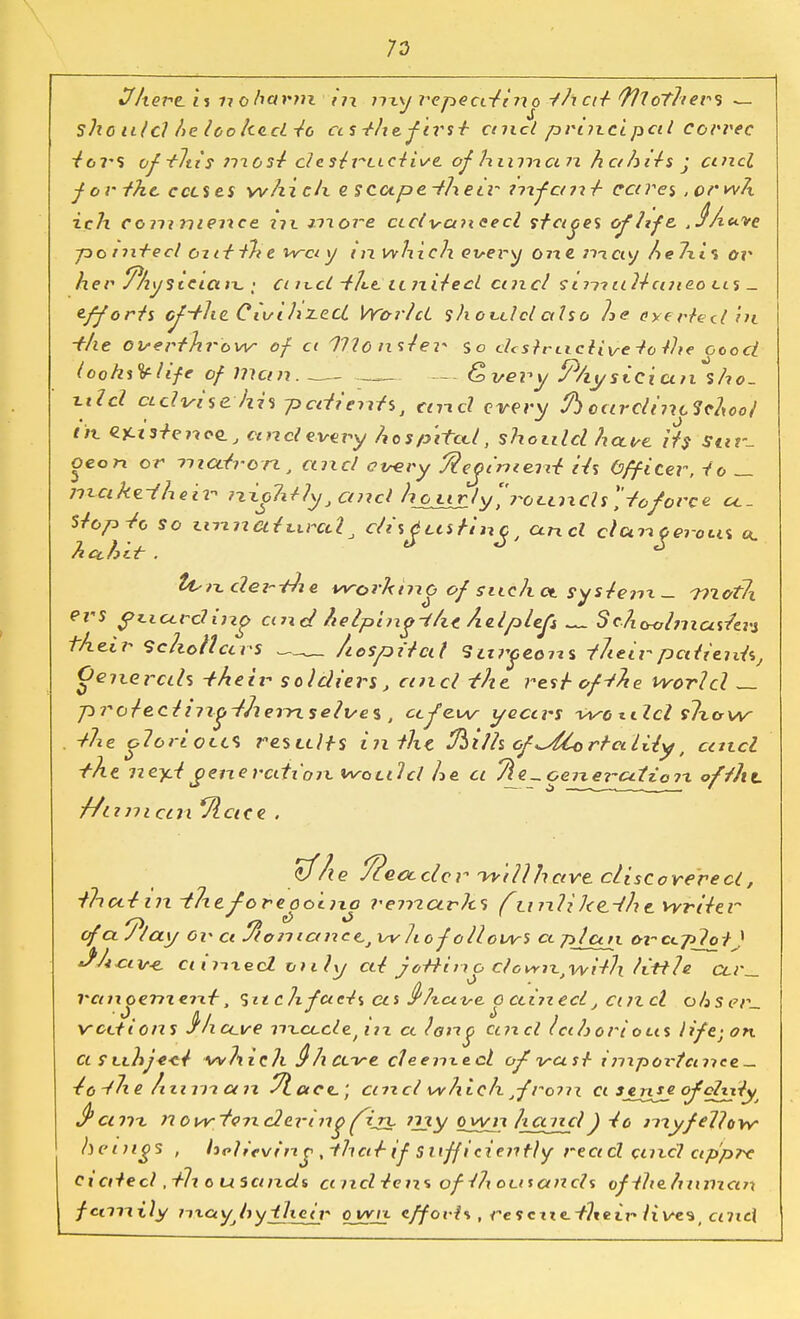 73
There is no harm in my repeating that Mothers —
should be looked to as the first and principal correc
tors of this most destructive of human habits; and
for the cases which escape their infant cares, or wh
ich commence in more advanced stages of life. I have
pointed out the way in which every one may be his or
her Physician; and the united and simultaneous —
efforts of the Civilized World should also be exerted in
the overthrow of a Monster so destructive to the good
looks & life of Man. — — — Every Physician sho-
uld advise his patients, and every Boarding School
in existence, and every hospital, should have its Sur-
geon or matron, and every Regiment its Officer, to —
make their nightly, and hourly, "rounds," to force a -
stop to so unnatural, disgusting, and dangerous a
habit.
Under the working of such a system — moth
ers guarding and helping the helpless — Schoolmasters
their Schollars — hospital Surgeons their patients,
Generals their soldiers, and the rest of the world —
protecting themselves, a few years would show
the glorious results in the Bills of Mortality, and
the next generation would be a Re-generation of the
Human Race.
The Reader will have discovered,
that in the foregoing remarks (unlike the writer
of a Play or a Romance, who follows a plan or a plot)
I have aimed only at jotting down, with little ar—
rangement, such facts as I have gained, and obser—
vations I have made, in a long and laborious life; on
a subject which I have deemed of vast importance —
to the human Race; and which, from a sense of duty,
I am now tendering (in my own hand) to my fellow
beings, believing, that if sufficiently read and appre
ciated, thousands and tens of thousands of the human
family may, by their own efforts, rescue their lives, and